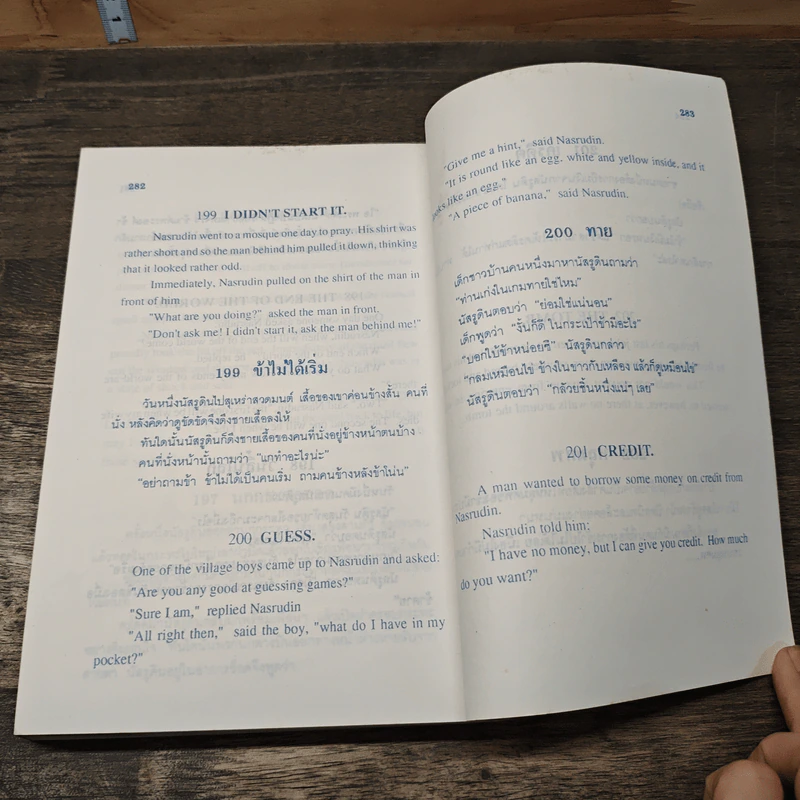 1
282
199 I DIDN'T START IT.
Nasrudin went to a mosque one day to pray. His shirt was
rather short and so the man behind him pulled it down, thinking
that it looked rather odd.
Immediately, Nasrudin pulled on the shirt of the man in
front of him
"What are you doing?" asked the man in front.
"Don't ask me! I didn't start it, ask the man behind me!"
199 ข้าไม่ได้เริ่ม
วันหนึ่งนัสรูดินไปสุเหร่าสวดมนต์ เสื้อของเขาค่อนข้างสั้น คนที่
นั่ง หลังคิดว่าดูขัดขัดจึงดึงชายเสื้อลงให้
ทันใดนั้นนัสรูดินก็ดึงชายเสื้อของคนที่นั่งอยู่ข้างหน้าตนบ้าง
คนที่นั่งหน้านั้นถามว่า "แกทำอะไรน่ะ"
"อย่าถามข้า ข้าไม่ได้เป็นคนเริ่ม ถามคนข้างหลังข้าโน่น"
200 GUESS.
One of the village boys came up to Nasrudin and asked:
"Are you any good at guessing games?"
"Sure I am," replied Nasrudin
"All right then," said the boy, "what do I have in my
pocket?"
283
"Give me a hint," said Nasrudin.
"It is round like an egg, white and yellow inside, and it
looks like an egg."
"A piece of banana," said Nasrudin.
200 ทาย
เด็กชาวบ้านคนหนึ่งมาหานัสรูดินถามว่า
"ท่านเก่งในเกมทายใช่ไหม"
นัสรูดินตอบว่า "ย่อมใช่แน่นอน"
เด็กพูดว่า "งั้นก็ดี ในกระเป๋าข้ามีอะไร"
"บอกใบ้ข้าหน่อยซี" นัสรูดินกล่าว
"กลมเหมือนไข่ ข้างในขาวกับเหลือง แล้วก็ดูเหมือนไข่"
นัสรูดินตอบว่า "กล้วยชิ้นหนึ่งแน่ๆ เลย"
201 CREDIT.
A man wanted to borrow some money on credit from
Nasrudin.
Nasrudin told him:
"I have no money, but I can give you credit. How much
do you want?"